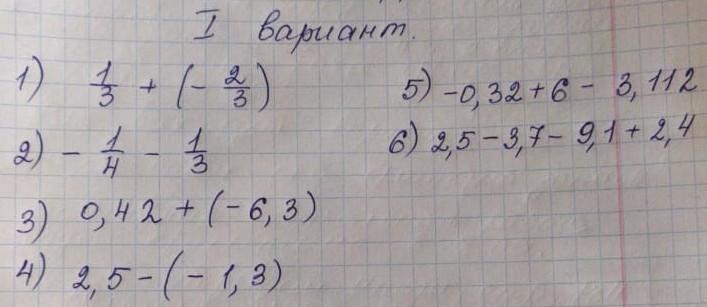 I вариант.
1) 1/3 + (- 2/3)
2) - 1/4 - 1/3
3) 0,42 + (-6,3)
4) 2,5 - (-1,3)
5) -0,32 + 6 - 3,112
6) 2,5 - 3,7 - 9,1 + 2,4